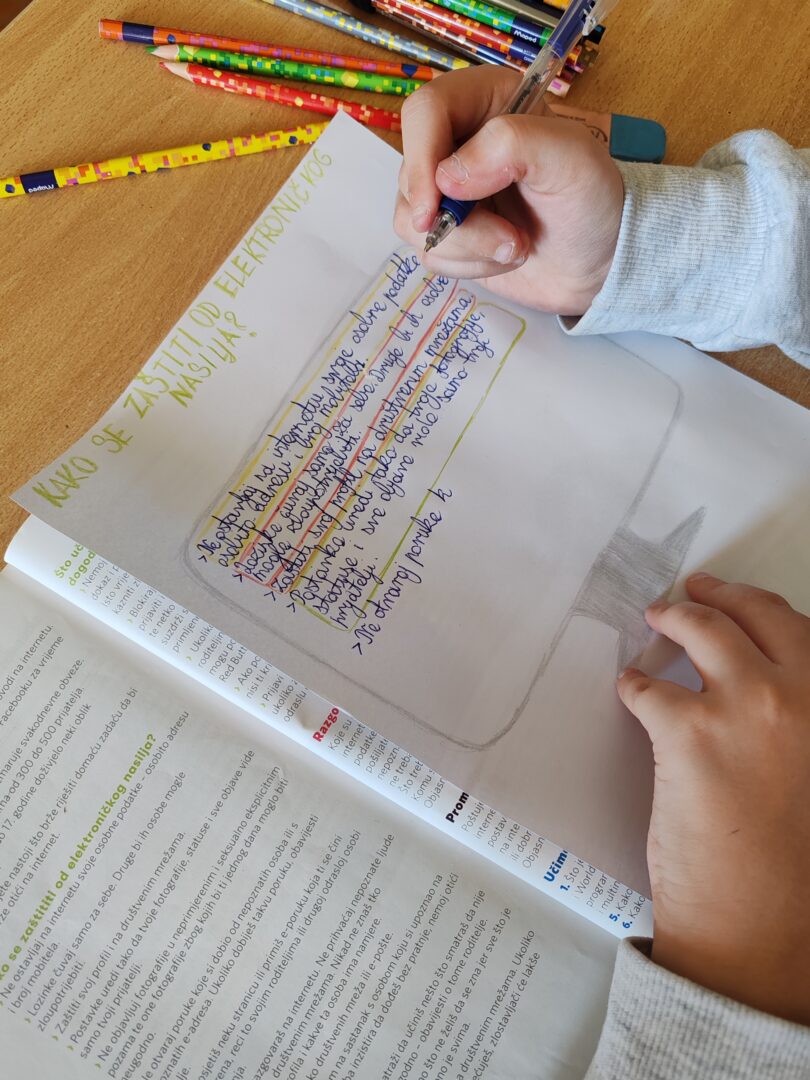 KAKO SE ZAŠTITI OD ELEKTRONIČKOG
NASILJA?
>Ne ostavljaj na internetu svoje osobne podatke
osobito adresu i broj mobitela.
>Lozinke čuvaj samo za sebe. Druge bi ih osobe
mogle zloupotrijebiti.
>Zaštiti svoj profil na društvenim mrežama.
>Postavke uredi tako da tvoje fotografije,
statuse i sve objave vide samo tvoji
prijatelji.
>Ne otvaraj poruke k
Maped
Maped
Maped
Što uč
dogod
› Nemoj
dokaz i p
isto vrije
kazniti z
› Blokira
prijaviti i
te netko
suzdrži s
primljen
› Ukoliko
roditeljim
mogu po
Red Butt
› Ako po
nisi ti kr
› Prijavi
ukoliko
odraslu
Razgo
Koje su
internet
podatke
pošiljat
nepozn
ne treb
Što treb
Komu s
Objasn
Prom
Poštuj
interne
postav
na inte
ili dobr
Objasn
Učim
1. Što je
i World
program
i multim
5. Kako
6. Kako
vodi na internetu.
Facebooku za vrijeme
maruje svakodnevne obveze.
ma od 300 do 500 prijatelja.
do 17. godine doživjelo neki oblik
internet.
jete nastoji što brže riješiti domaću zadaću da bi
že otići na internet.
ko se zaštititi od elektroničkog nasilja?
› Ne ostavljaj na internetu svoje osobne podatke – osobito adresu
i broj mobitela.
› Lozinke čuvaj samo za sebe. Druge bi ih osobe mogle
zloupotrijebiti.
› Zaštiti svoj profil i na društvenim mrežama.
› Postavke uredi tako da tvoje fotografije, statuse i sve objave vide
samo tvoji prijatelji.
› Ne objavljuj fotografije u neprimjerenim i seksualno eksplicitnim
pozama te one fotografije zbog kojih bi ti jednog dana moglo biti
neugodno.
e otvaraj poruke koje si dobio od nepoznatih osoba ili s
poznatih e-adresa. Ukoliko dobiješ takvu poruku, obavijesti
lje.
osjetiš neku stranicu ili primiš e-poruku koja ti se čini
rena, reci to svojim roditeljima ili drugoj odrasloj osobi
azgovaraš na internetu. Ne prihvaćaj nepoznate ljude
društvenim mrežama. Nikad ne znaš tko
rofila i kakve ta osoba ima namjere.
ko društvenih mreža ili e-pošte.
m na sastanak s osobom koju si upoznao na
ba inzistira da dođeš bez pratnje, nemoj otići
atraži da učiniš nešto što smatraš da nije
godno – obavijesti o tome roditelje.
no što ne želiš da se zna jer sve što je
ano je svima.
a društvenim mrežama. Ukoliko
ećuješ, zlostavljači će lakše